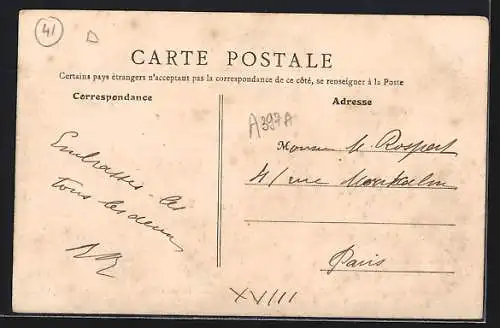 41
CARTE POSTALE
Certains pays étrangers n'acceptant pas la correspondance de ce côté, se renseigner à la Poste
Correspondance
Adresse
A397A
M. Rospert
41 rue Montcalm
Paris
XVIII
tous les deux